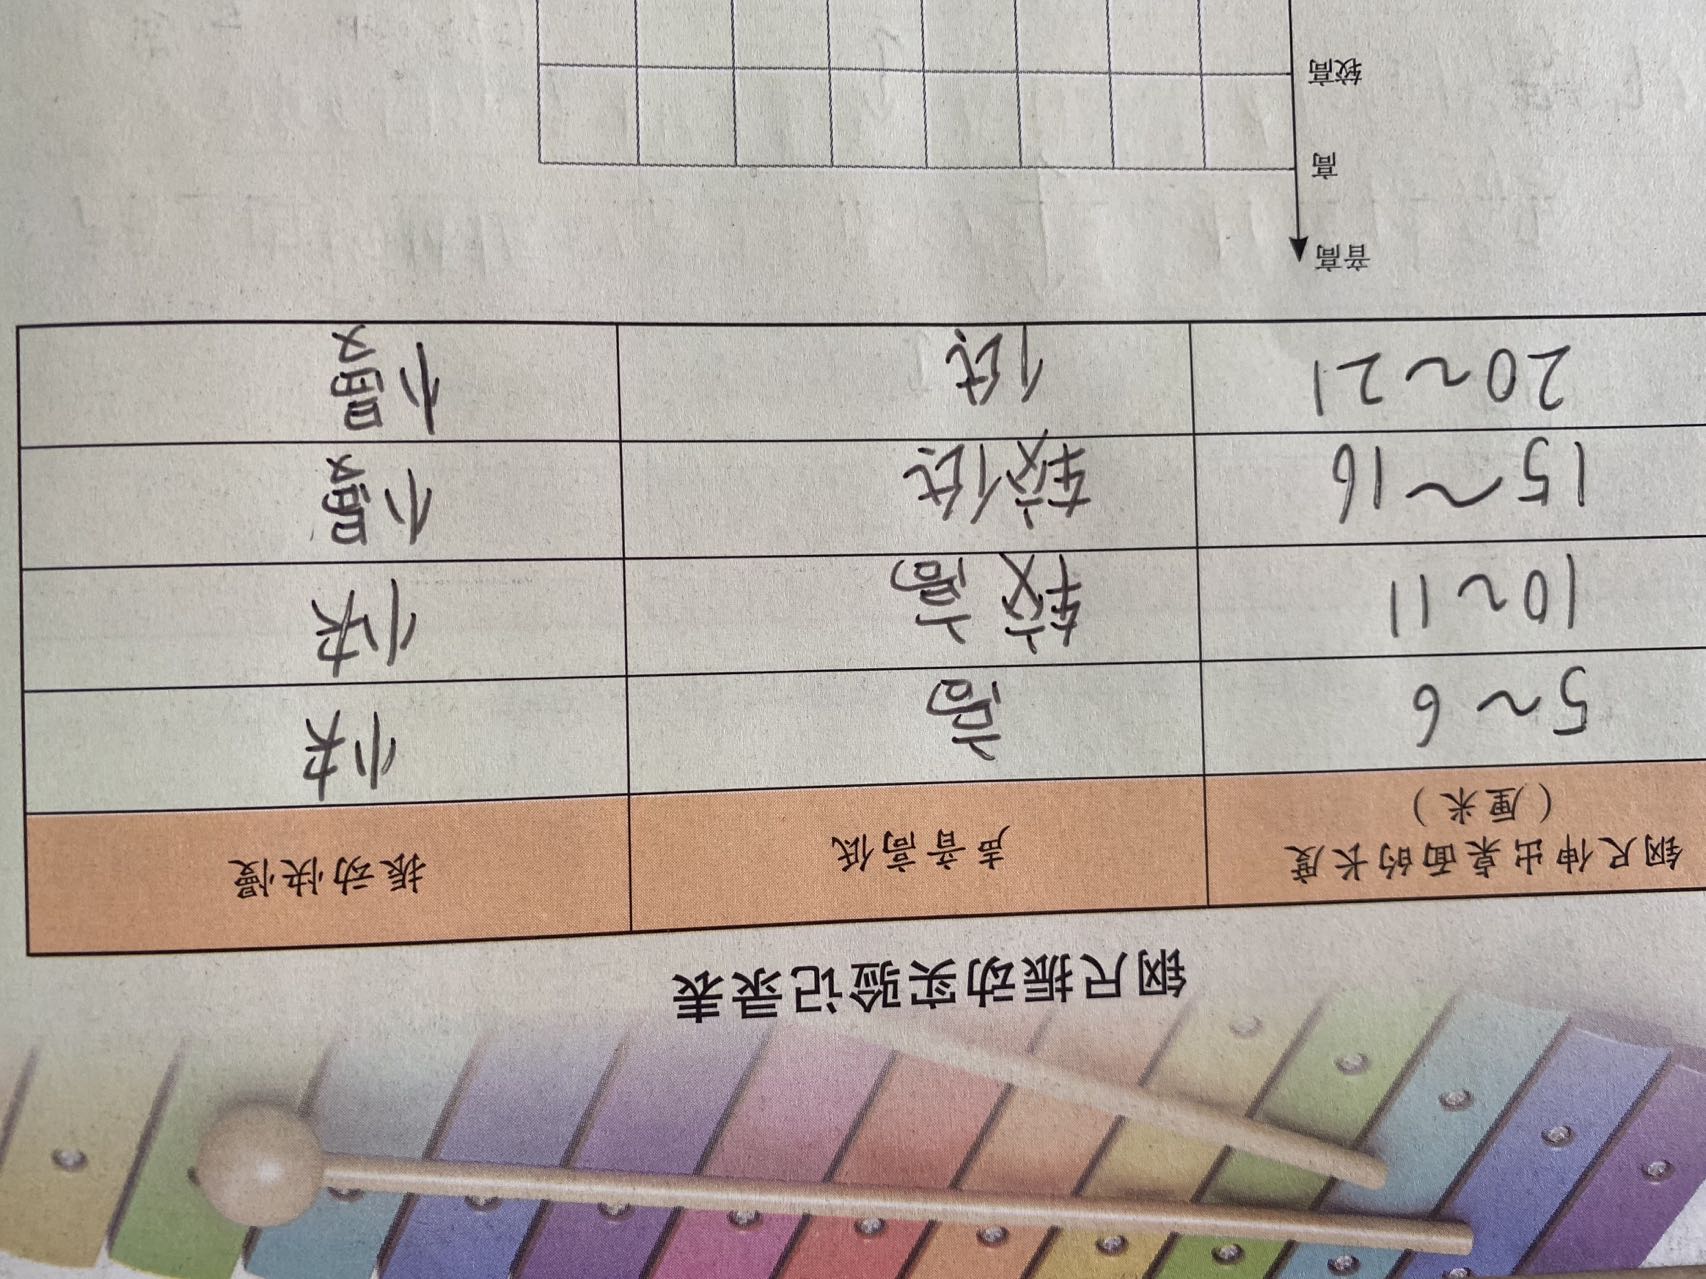 钢尺振动实验记录表
钢尺伸出桌面的长度（厘米） 声音高低 振动快慢
5～6 高 快
10～11 较高 快
15～16 较低 慢
20～21 低 慢
音高
高
较高